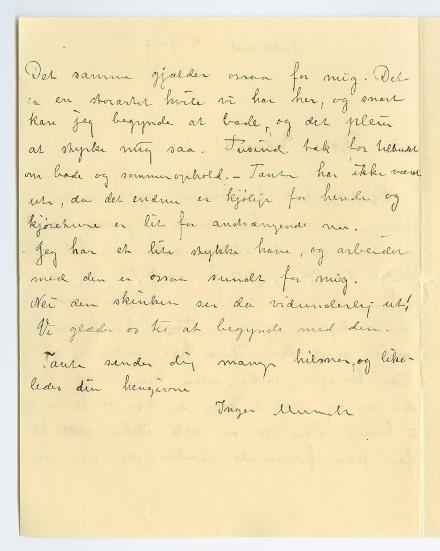 Det samme gjælder ossaa for mig. Det
er en storartet hvile vi har her, og snart
kan jeg begynde at bade, og det pleier
at styrke mig saa. Tusind tak for tilbudet
om bade og sommerophold. – Tante har ikke været
ute, da det endnu er kjølig for hende og
kjøreturene er lit for anstrængende nu.
Jeg har et lite stykke have, og arbeidet
med den er ossaa sundt for mig.
Nei den skinken ser da vidunderlig ut!
Vi glæder os til at begynde med den.
Tante sender dig mange hilsner, og like-
ledes din hengivne
Inger Munch